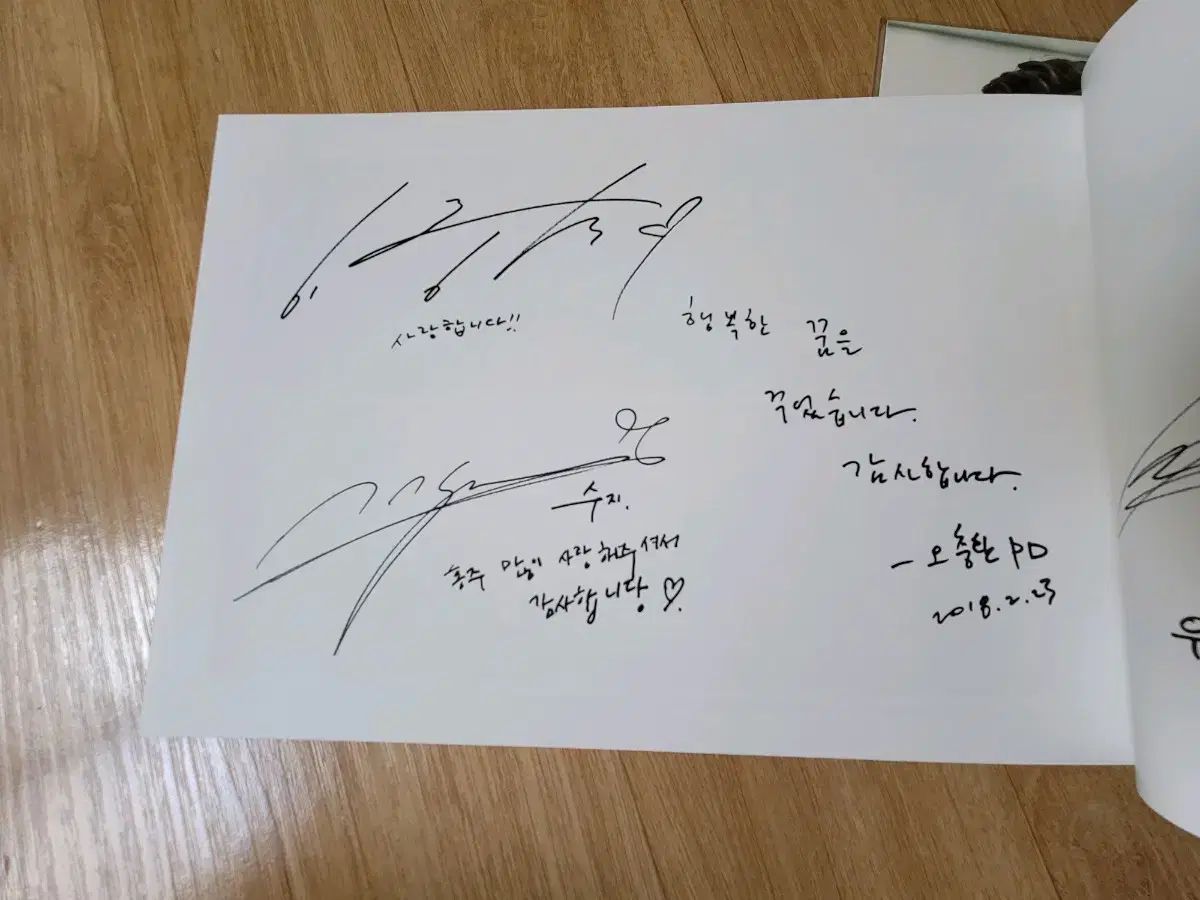 사랑합니다!!
행복한 꿈을
꾸었습니다.
감사합니다.
- 오충환 PD
2018.2.23
수지.
홍주 많이 사랑해주셔서
감사합니당 ♡.